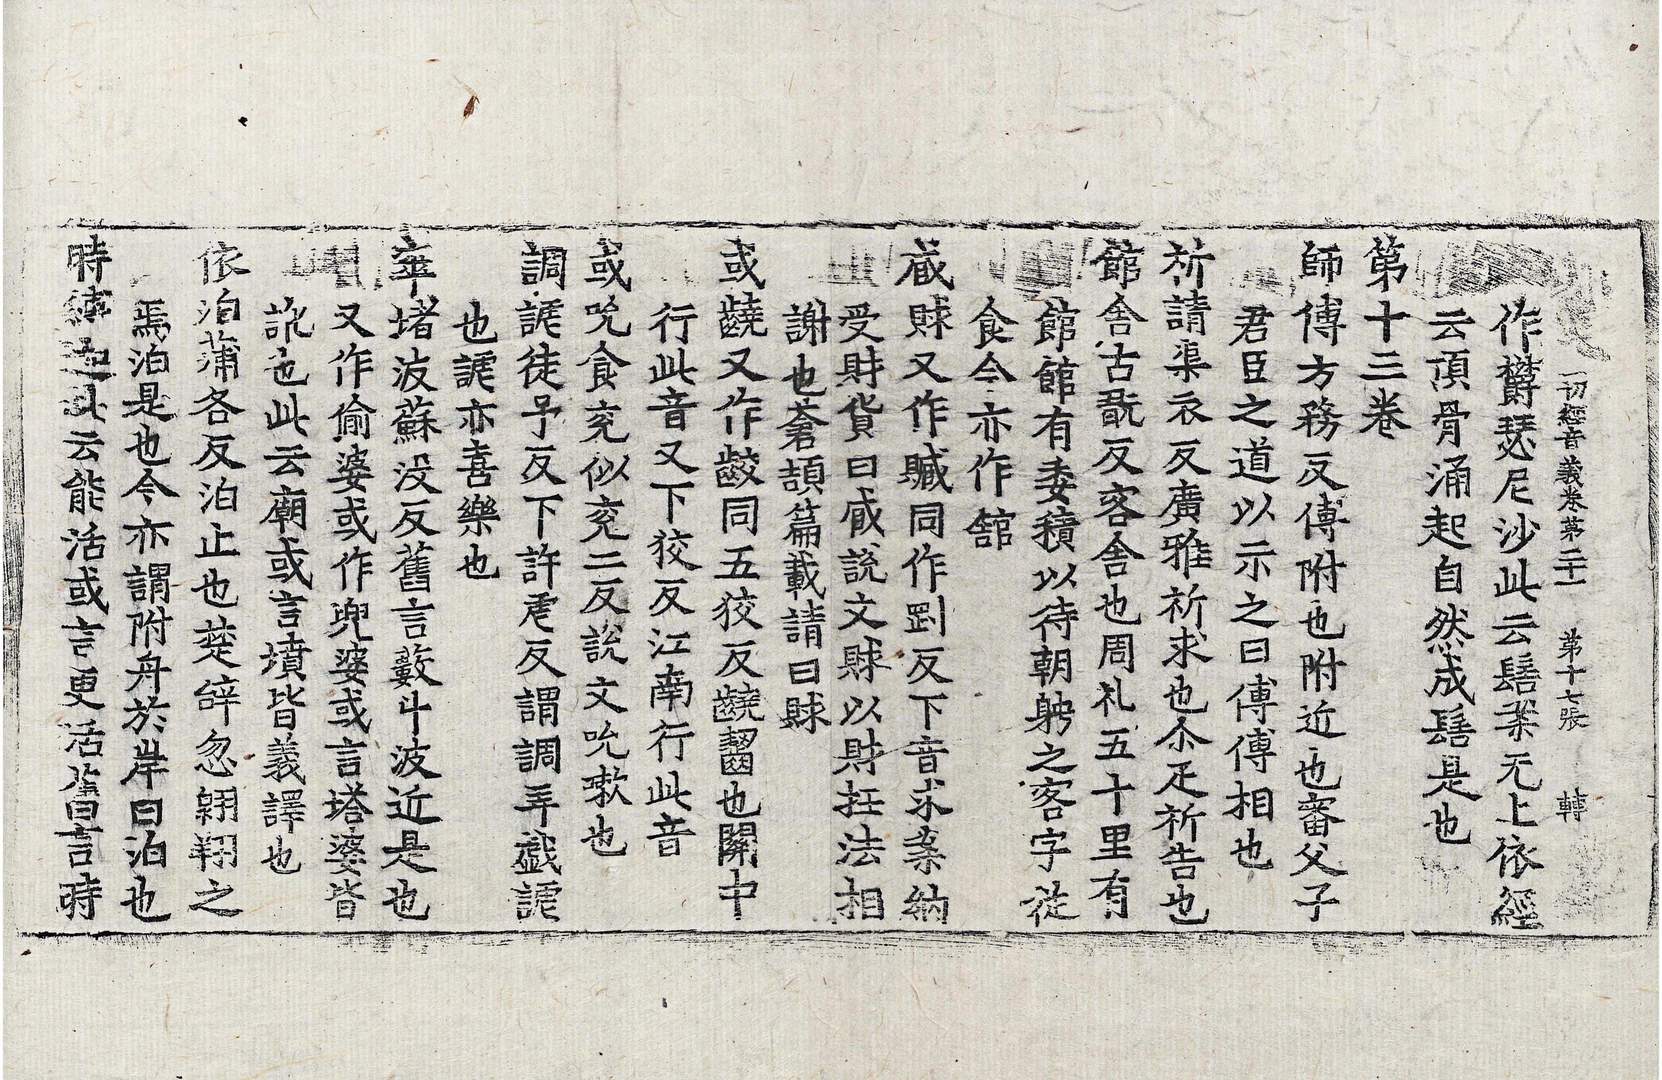 一切經音義卷第二十一 第十七張 轉
作欝瑟尼沙此云髻案无上依經
云頂骨涌起自然成髻是也
第十三卷
師傅方務反傅附也附近也審父子
君臣之道以示之曰傅傅相也
祈請渠衣反廣雅祈求也尒疋祈告也
館舍古翫反客舍也周礼五十里有
館館有委積以待朝聘之客字從
食今亦作舘
賕又作贓同作割反下音求案納
受財貨曰說文賕以財抂法相
謝也蒼頡篇載請曰賕
或齩又作齩同五狡反齩齧也關中
行此音又下狡反江南行此音
或吮食兖似兖二反說文吮嗽也
調謔徒予反下許虐反謂調弄戲謔
也謔亦喜樂也
窣堵波蘇没反舊言藪斗波近是也
又作偷婆或作兜婆或言塔婆皆
訛也此云廟或言墳皆義譯也
依泊蒲各反泊止也楚辝忽翱翔之
焉泊是也今亦謂附舟於岸曰泊也
時縛迦此云能活或言更活舊言時